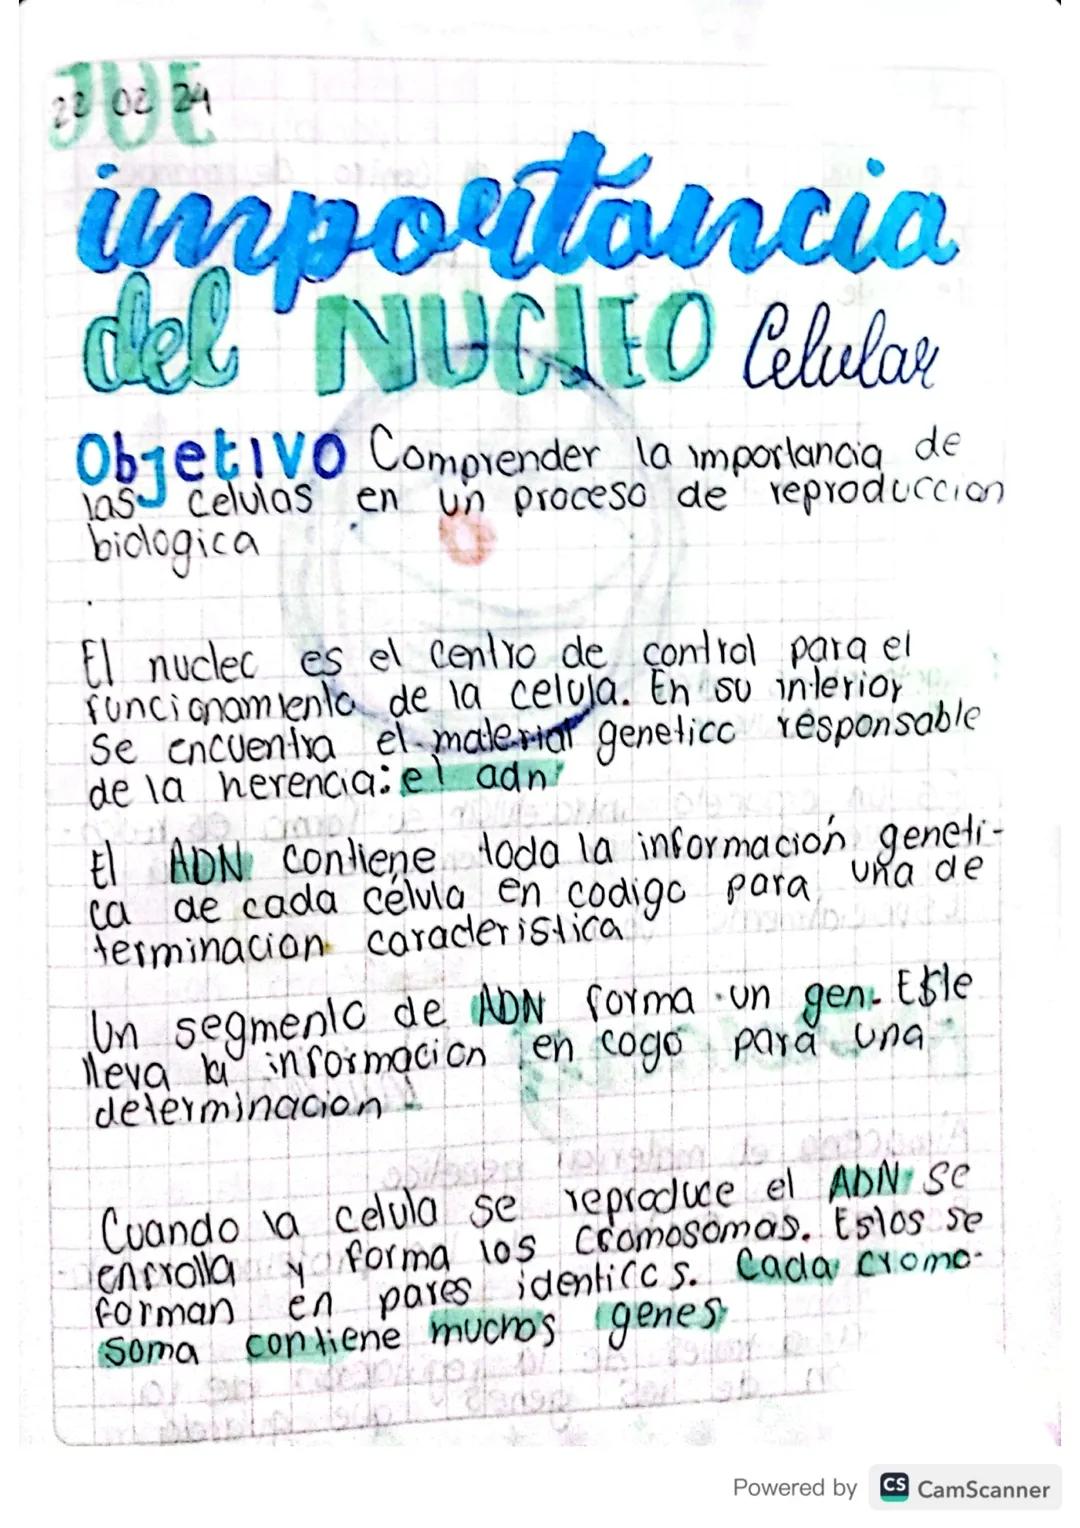 JUE
22 02 24
importancia
del NUCLEO Celular
Objetivo Comprender la importancia de
las celulas en un proceso de reproduccion
biologica
El nucleo es el centro de control para el
funcionamiento de la celula. En su interior
se encuentra el material genetico responsable
de la herencia: el adn
El ADN contiene toda la información geneti-
ca de cada célula en codigo para una de
terminacion caracteristica
Un segmento de ADN forma un gen. Este
lleva la informacion en cogo para una
determinacion
Cuando la celula se reproduce el ADN se
enrrolla y forma los cromosomas. Estos se
forman en pares identicos. Cada cromo-
soma contiene muchos genes
Powered by CS CamScanner